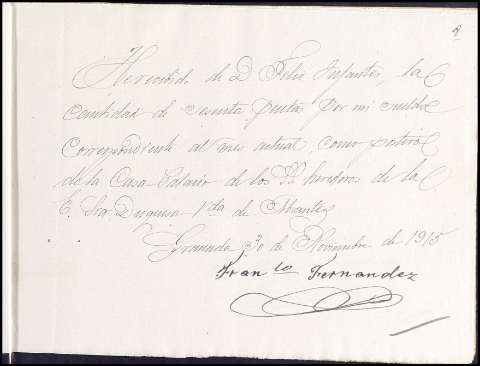 He recibido de D Felix Infantes, la
cantidad de sesenta pesetas por mi sueldo
correspondiente al mes actual, como portero
de la Casa Palacio de los de la
E. Sra Duquesa Vda de Abrantes
Granada 30 de Noviembre de 1915
Fran co Fernandez